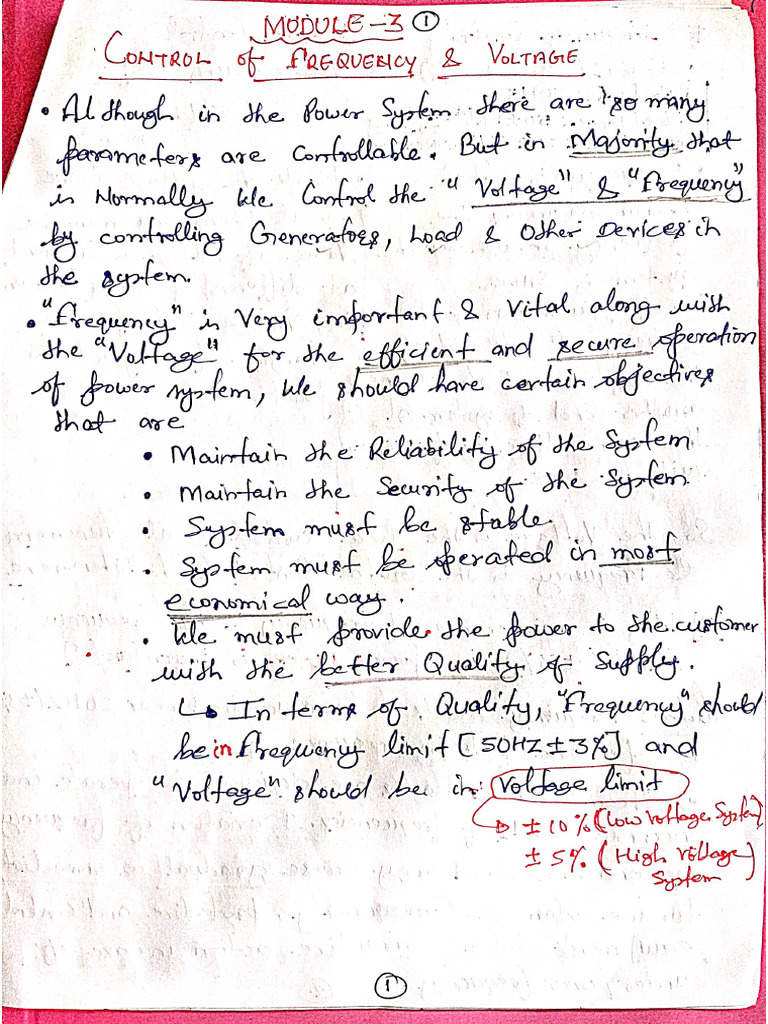 MODULE-3 ①
CONTROL of FREQUENCY & VOLTAGE
• Although in the Power System there are so many
parameters are controllable. But in Majority that
is Normally We Control the "Voltage" & "Frequency"
by controlling Generators, Load & Other Devices in
the system.
• "Frequency" is Very important & Vital along with
the "Voltage" for the efficient and secure operation
of power system, We should have certain objectives
that are
• Maintain the Reliability of the System
• Maintain the Security of the System
• System must be stable.
• System must be operated in most
economical way.
• We must provide the power to the customer
with the better Quality of Supply.
↳ In terms of Quality, "Frequency" should
be in frequency limit [50HZ ± 3%] and
"Voltage" should be in Voltage limit
→ ± 10% (Low Voltage System)
± 5% (High Voltage
System)
①